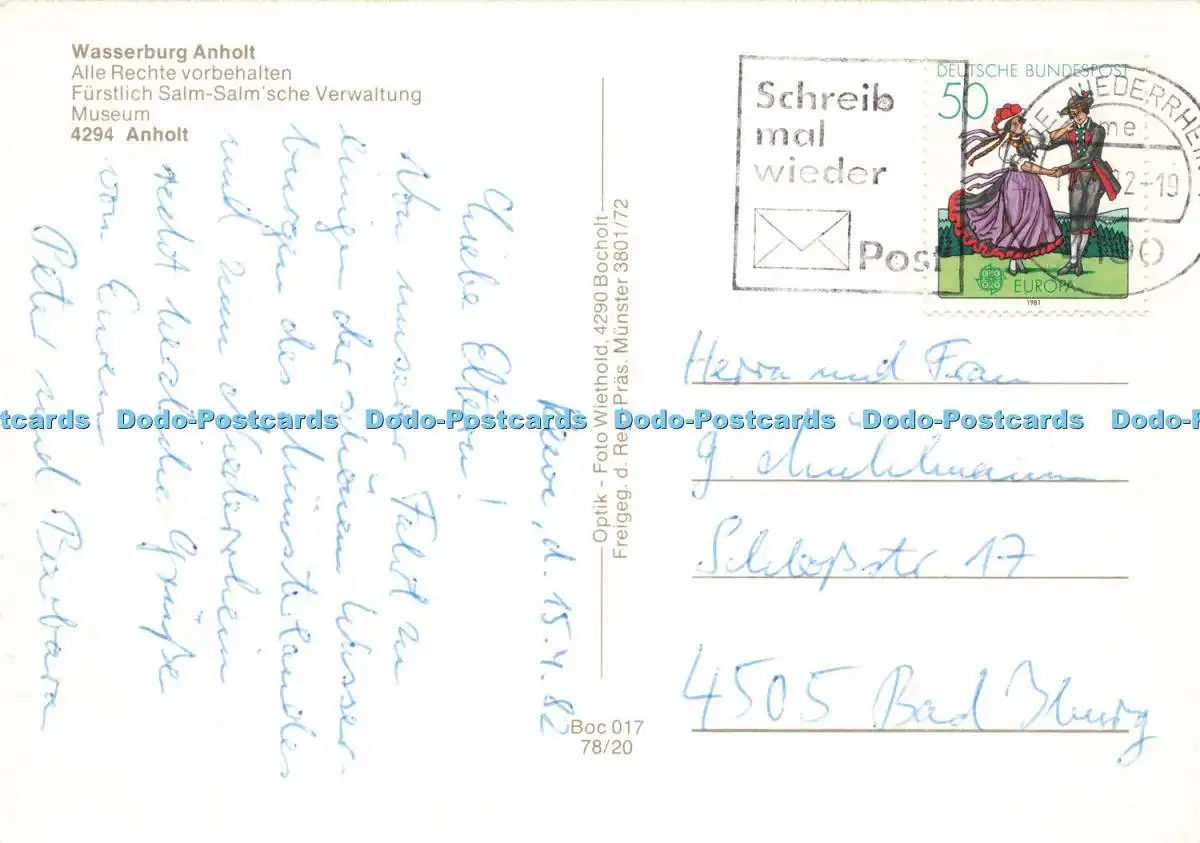 Wasserburg Anholt
Alle Rechte vorbehalten
Fürstlich Salm-Salm'sche Verwaltung
Museum
4294 Anholt
Kleve, d. 15.4.82
Liebe Eltern!
Von unserer Fahrt zu
einigen der schönen Wasser-
burgen des Münsterlandes
und zum Niederrhein
recht herzliche Grüße
von Euren
Peter und Barbara
Optik - Foto Wiethold, 4290 Bocholt
Freigeg. d. Reg. Präs. Münster 3801/72
Boc 017
78/20
Schreib
mal
wieder
Post
DEUTSCHE BUNDESPOST
50
EUROPA
1981
NIEDERRHEIN
82-19
Herrn und Frau
G.
Schloßstr 17
4505 Bad Iburg
Dodo-Postcards Dodo-Postcards Dodo-Postcards Dodo-Postcards Dodo-Postcards